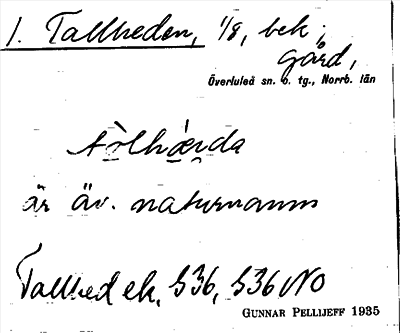 1. Tallheden, 1/8, bek;
gård,
Överluleå sn. o. tg., Norrb. län
tòlhǽṇda
är äv. naturnamn
Tallhed ek. S36, S36 NO
GUNNAR PELLIJEFF 1935